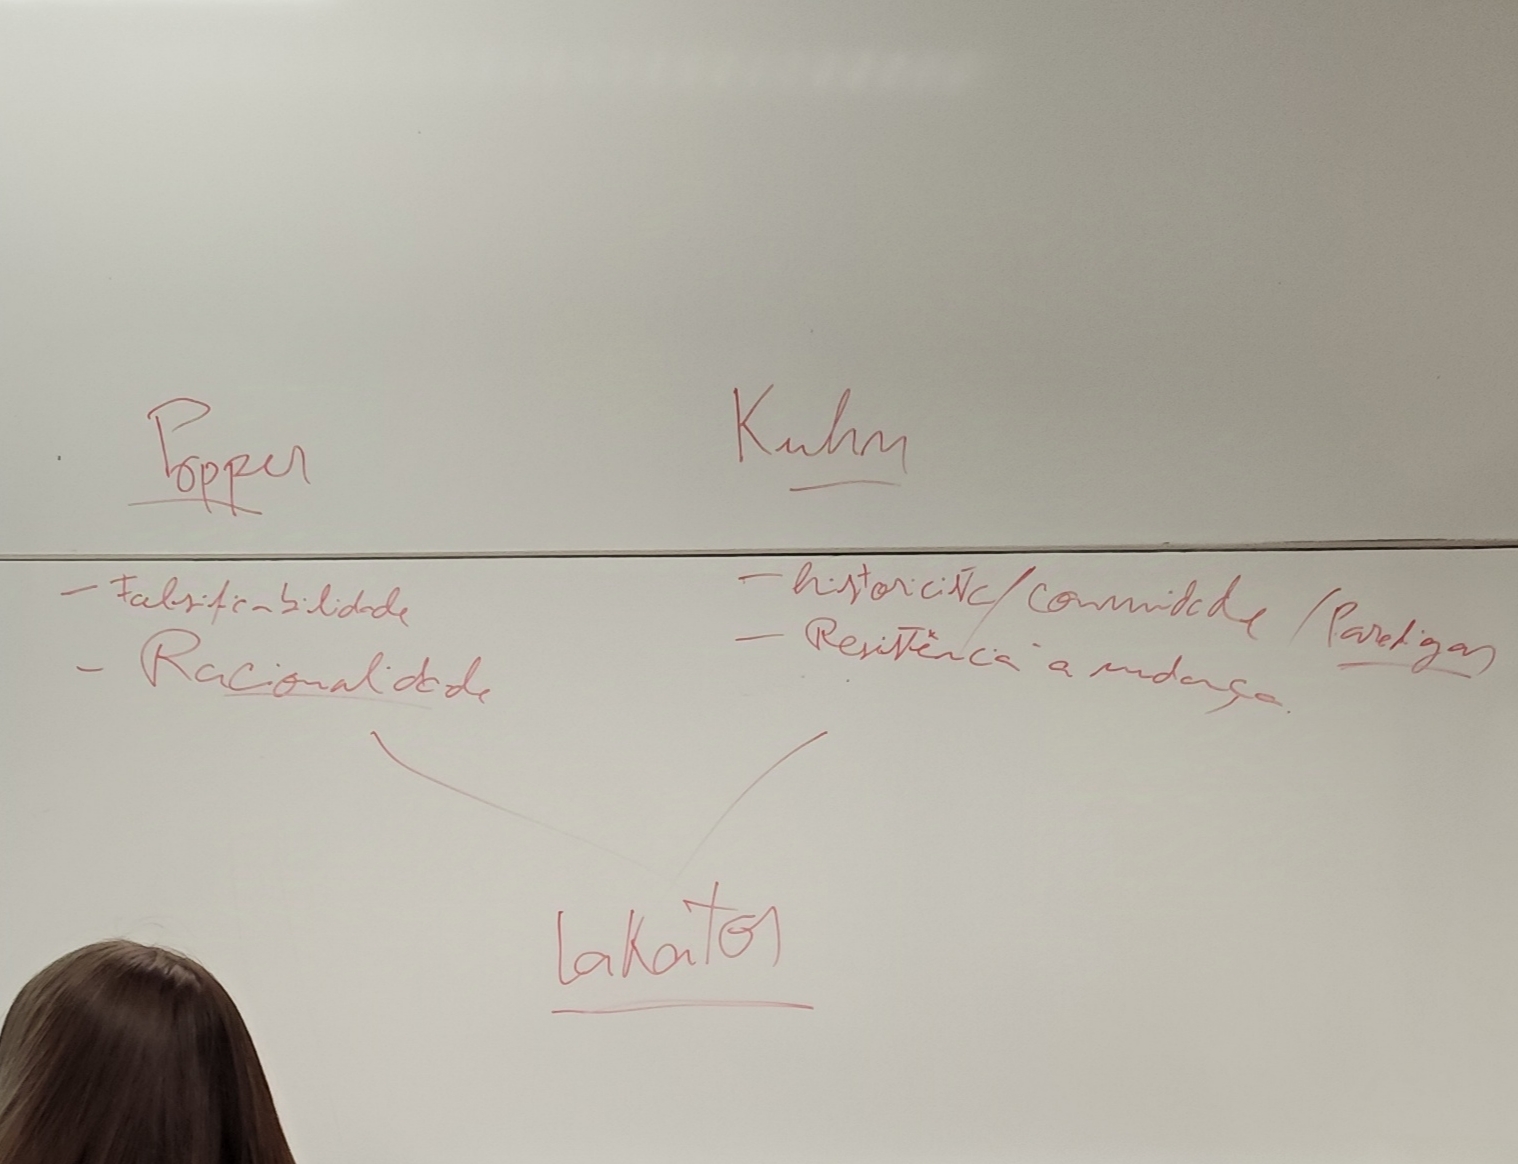 Popper
- Falsificabilidade
- Racionalidade
Kuhn
- historicista/comunidade/Paradigas
- Resistência a mudança.
Lakatos